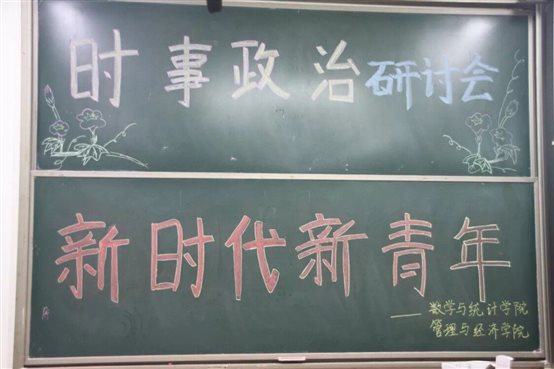 时事政治研讨会
新时代新青年
——数学与统计学院
管理与经济学院